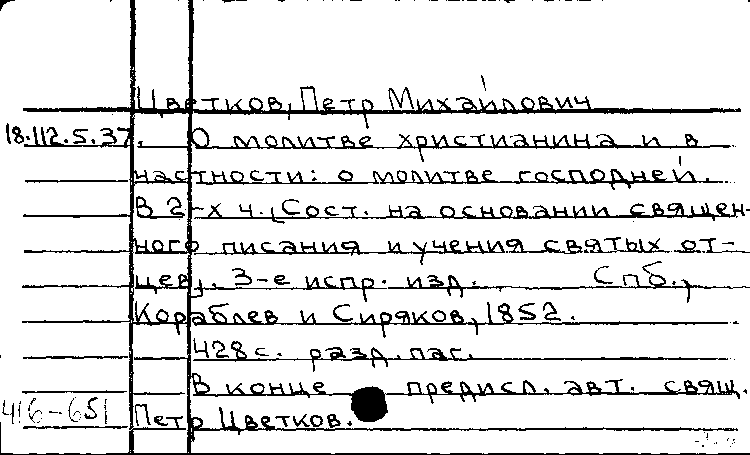 Цветков, Петр Михайлович
18.112.5.37. О молитве христианина и в
частности: о молитве господней.
В 2-х ч. [Сост. на основании священ-
ного писания и учения святых от-
цев]. 3-е испр. изд. Спб.,
Кораблев и Сиряков, 1852.
428 с. разд. паг.
В конце предисл. авт. свящ.
416-651 Петр Цветков.